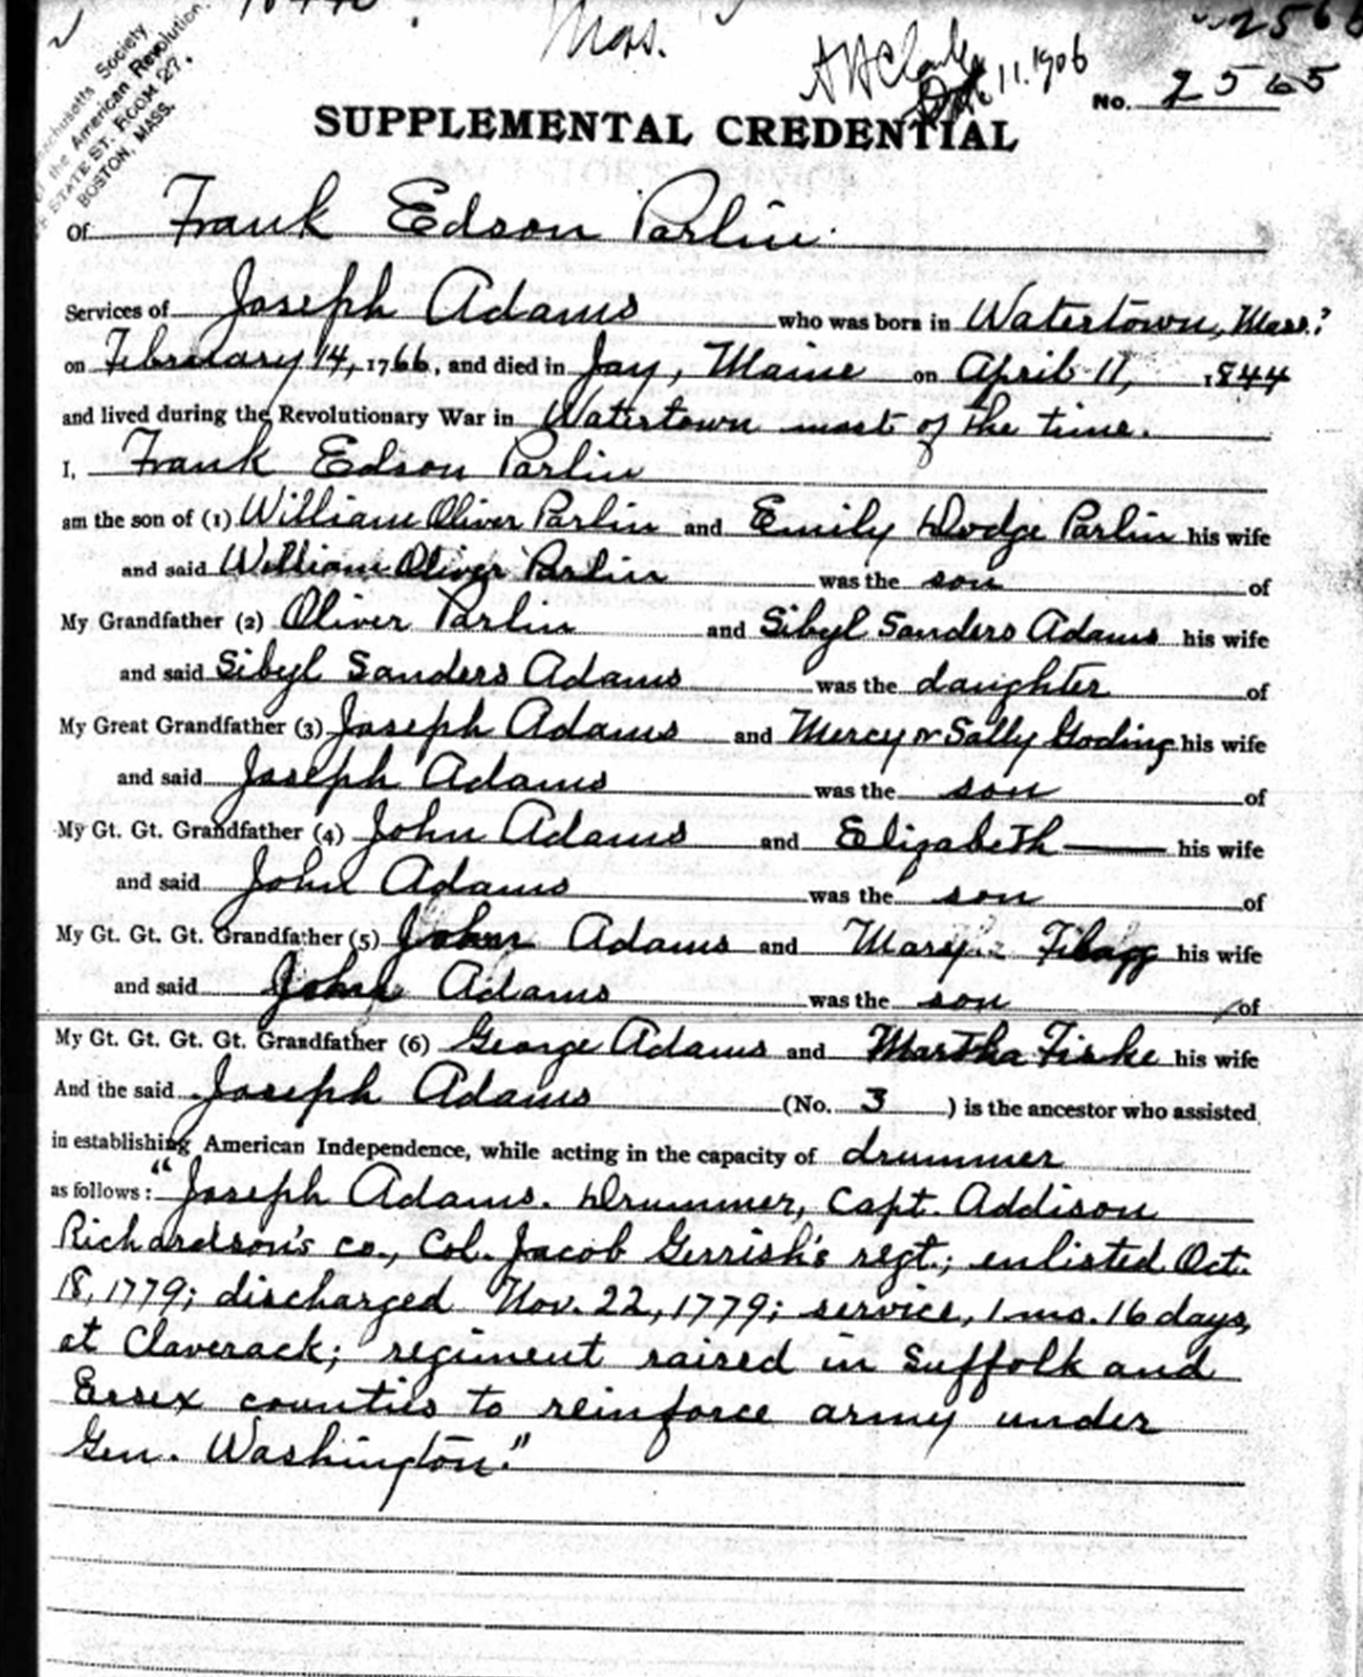 Mass.
2565
A A Clarke
Dec 11. 1906
Massachusetts Society
of the American Revolution.
STATE ST. ROOM 27.
BOSTON, MASS.
No. 2565
SUPPLEMENTAL CREDENTIAL
Of Frank Edson Parlin
Services of Joseph Adams who was born in Watertown, Mass.?
on February 14, 1766, and died in Jay, Maine on April 11, 1844
and lived during the Revolutionary War in Watertown most of the time.
I, Frank Edson Parlin
am the son of (1) William Oliver Parlin and Emily Dodge Parlin his wife
and said William Oliver Parlin was the son of
My Grandfather (2) Oliver Parlin and Sibyl Sanders Adams his wife
and said Sibyl Sanders Adams was the daughter of
My Great Grandfather (3) Joseph Adams and Mercy or Sally Goding his wife
and said Joseph Adams was the son of
My Gt. Gt. Grandfather (4) John Adams and Elizabeth —— his wife
and said John Adams was the son of
My Gt. Gt. Gt. Grandfather (5) John Adams and Mary Flagg his wife
and said John Adams was the son of
My Gt. Gt. Gt. Gt. Grandfather (6) George Adams and Martha Fiske his wife
And the said Joseph Adams (No. 3 ) is the ancestor who assisted
in establishing American Independence, while acting in the capacity of drummer
as follows: "Joseph Adams. Drummer, Capt. Addison
Richardson's co., Col. Jacob Gerrish's regt.; enlisted Oct.
18, 1779; discharged Nov. 22, 1779; service, 1 mo. 16 days,
at Claverack; regiment raised in Suffolk and
Essex counties to reinforce army under
Gen. Washington."